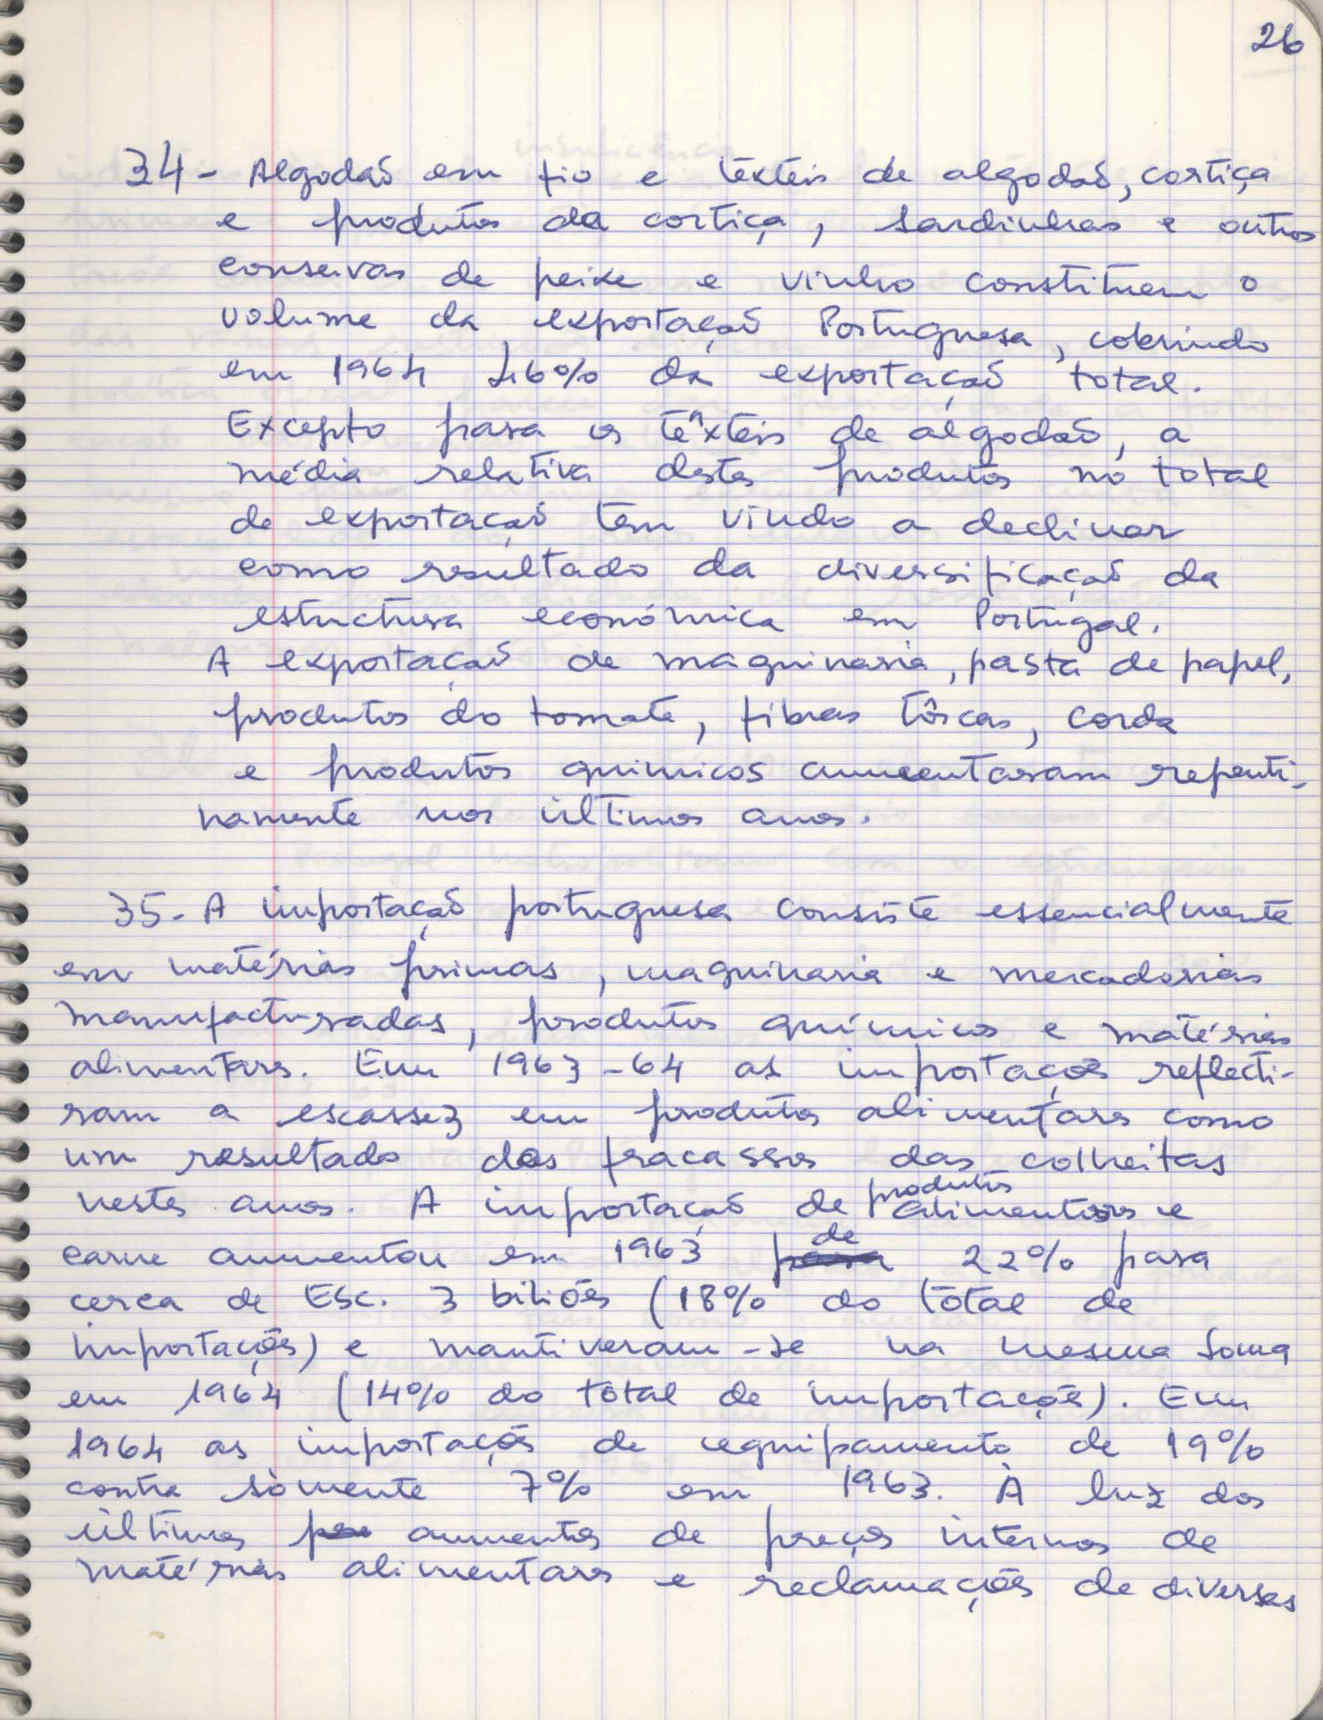 26
34 - Algodão em fio e têxteis de algodão, cortiça
e produtos da cortiça, sardinhas e outras
conservas de peixe e vinho constituem o
volume da exportação Portuguesa, cobrindo
em 1964 46% da exportação total.
Excepto para os têxteis de algodão, a
média relativa destes produtos no total
de exportação tem vindo a declinar
como resultado da diversificação da
estructura económica em Portugal.
A exportação de maquinaria, pasta de papel,
produtos do tomate, fibras tôscas, corda
e produtos quimicos aumentaram repenti-
namente nos últimos anos.
35 - A importação portuguesa consiste essencialmente
em matérias primas, maquinaria e mercadorias
manufacturadas, produtos químicos e matérias
alimentares. Em 1963-64 as importações reflecti-
ram a escassez em produtos alimentares como
um resultado dos fracassos das colheitas
nestes anos. A importação de produtos alimentares e
carne aumentou em 1963 de 22% para
cerca de Esc. 3 biliões (18% do total de
importações) e mantiveram-se na mesma soma
em 1964 (14% do total de importações). Em
1964 as importações de equipamento de 19%
contra sòmente 7% em 1963. À luz dos
últimos aumentos de preços internos de
matérias alimentares e reclamações de diversas